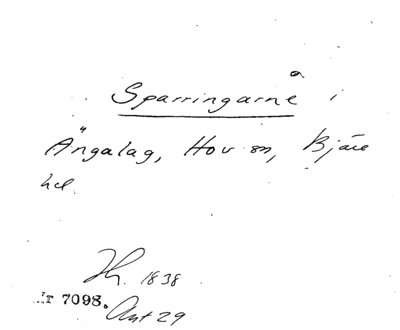 Sparringarne i
Ängalag, Hov sn, Bjäre
hd.
1838
Nr 7098. Ant 29